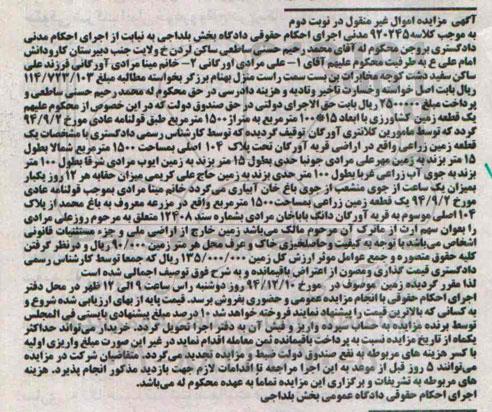 آگهی مزایده اموال غیر منقول در نوبت دوم
به موجب کلاسه ۹۲۰۲۴۵ مدنی اجرای احکام حقوقی دادگاه بخش بلداجی به نیابت از اجرای احکام مدنی
دادگستری بروجن محکوم له آقای محمد رحیم حسنی ساطعی ساکن لردن خ ولایت جنب دبیرستان کارودانش
امام علی ع به طرفیت محکوم علیهم آقای ۱- علی مرادی اورگانی ۲- خانم مینا مرادی آورگانی فرزند علی
ساکن سفید دشت کوچه مخابرات بن بست سمت راست منزل بهنام برزگر بخواسته مطالبه مبلغ ۱۱۴/۷۲۳/۱۰۳
ریال بابت اصل خواسته وخسارت تأخیر وتادیه و هزینه دادرسی در حق محکوم له محمد رحیم حسنی ساطعی و
پرداخت مبلغ ۲۵۰۰۰۰۰ ریال بابت حق الاجرای دولتی در حق صندوق دولت که در این خصوص از محکوم علیهم
یک قطعه زمین کشاورزی با ابعاد ۱۵*۱۰۰ متر به متراژ ۱۵۰۰ مترمربع طبق قولنامه عادی مورخ ۹۴/۹/۲
گردد که توسط مامورین کلانتری آورگان توقیف گردیده که توسط کارشناس رسمی دادگستری با مشخصات یک
قطعه زمین زراعی واقع در اراضی قریه آورگان تحت پلاک ۱۰۴ اصلی بمساحت ۱۵۰۰ مترمربع شمالا بطول
۱۵ متر بزند به زمین مهرعلی مرادی جونبا حدی بطول ۱۵ متر بزند به زمین ایوب مرادی شرقا بطول ۱۰۰ متر
بزند به جوی آب زراعی غربا بطول ۱۰۰ متر حدی بزند به زمین حاج علی کریمی میزان حقابه هر ۱۲ روز یکبار
بمیزان یک ساعت از جوی منشعب از جوی باغ خان آبیاری می گردد خانم مینا مرادی بموجب قولنامه عادی
مورخ ۹۴/۹/۲ یک قطعه زمین زراعی بمساحت ۱۵۰۰ مترمربع واقع در مزرعه معروف به باغ محمد از پلاک
۱۰۴ اصلی موسوم به قریه آورگان دانگ باباخان مرادی بشماره سند ۱۲۴۰۸ متعلق به مرحوم روزعلی مرادی
را بعوان سهم ارث از ماترک آن مرحوم مالک می‌باشد زمین خارج از اراضی ملی و جزء مستثنیات قانونی
اشخاص می‌باشد با توجه به کیفیت و حاصلخیزی خاک و عرف محل هر متر زمین ۹۰/۰۰۰ ریال و در نظر گرفتن
کلیه حقوق متصوره و جمع عوامل موثر ارزش کل زمین ۱۳۵/۰۰۰/۰۰۰ ریال که جمعا توسط کارشناس رسمی
دادگستری قیمت گذاری ومصون از اعتراض باقیمانده و به شرح فوق توصیف اجمالی شده است
لذا مقرر گردیده زمین موصوف در مورخ ۹۴/۱۲/۱۰ روز دوشنبه راس ساعت ۹ الی ۱۲ ظهر در محل دفتر
اجرای احکام حقوقی با انجام مزایده عمومی و حضوری بفروش برسد. قیمت پایه از بهای ارزیابی شده شروع و
به کسانی که بالاترین قیمت را پیشنهاد نمایند فروخته خواهد شد ۱۰ درصد مبلغ پیشنهادی بایستی فی المجلس
توسط برنده مزایده به حساب سپرده واریز و فیش آن به دفتر اجرا تحویل گردد. خریدار می‌تواند حداکثر
یکماه از تاریخ مزایده نسبت به پرداخت باقیمانده ثمن معامله اقدام نماید در غیر این صورت مبلغ واریزی اولیه
با کسر هزینه های مربوطه به نفع صندوق دولت ضبط و مزایده تجدید می‌گردد. متقاضیان شرکت در مزایده
می‌توانند ۵ روز قبل از موعد به این اجرا مراجعه تا اقدامات لازم جهت بازدید مذکور انجام پذیرد. هزینه
های مربوطه به تشریفات و برگزاری این مزایده تماما به عهده محکوم له می‌باشد.
اجرای احکام حقوقی دادگاه عمومی بخش بلداجی